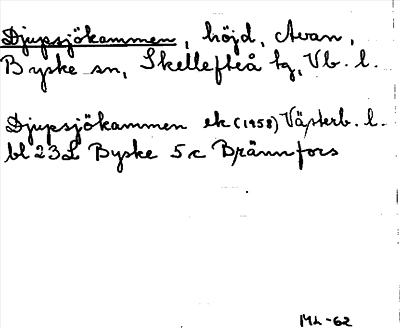 Djupsjökammen, höjd, Avan,
Byske sn, Skellefteå tg, Vb. l.
Djupsjökammen ek (1958) Västerb. l.
bl 23L Byske 5c Brännfors
ML-62